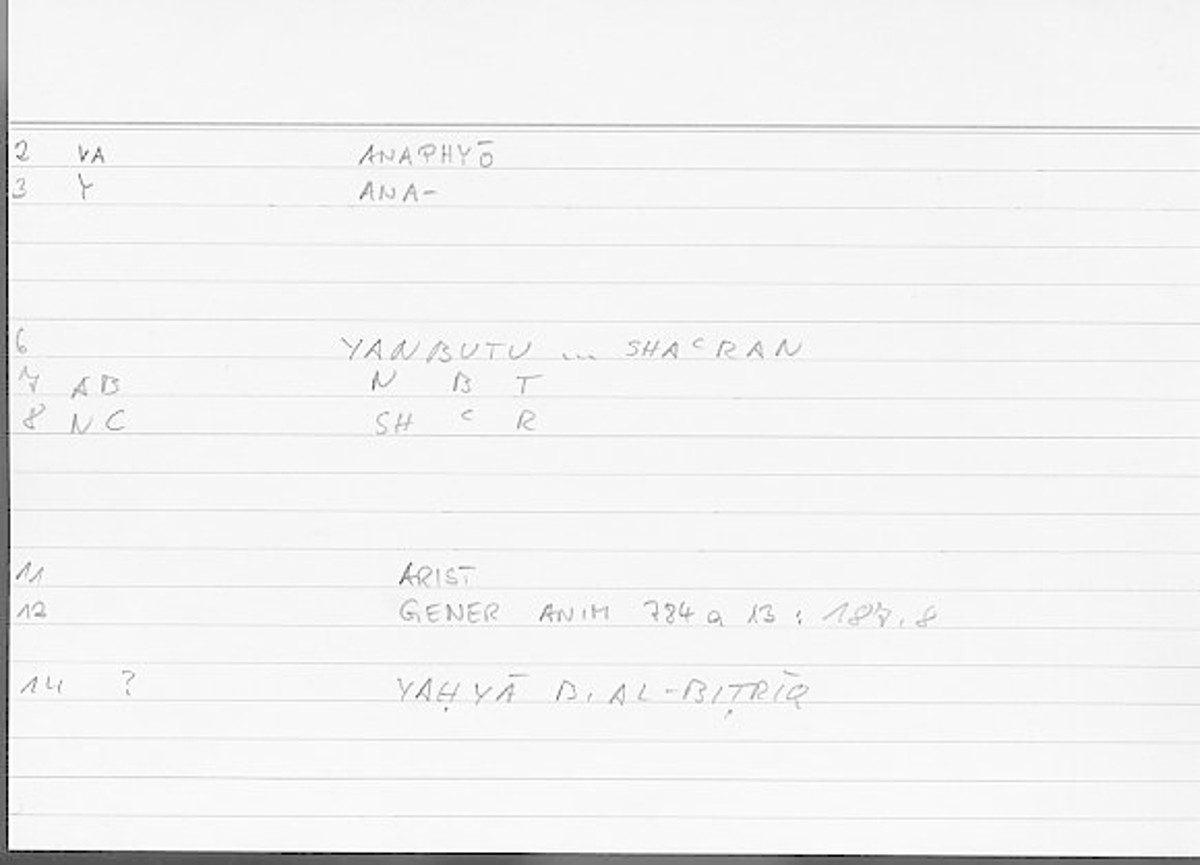 2 VA ANAPHYŌ
3 Y ANA-
6 YANBUTU ... SHAᶜRAN
7 AB N B T
8 NC SH ᶜ R
11 ARIST
12 GENER ANIM 784 a 13 : 187.8
14 ? YAḤYĀ B. AL-BIṬRĪQ